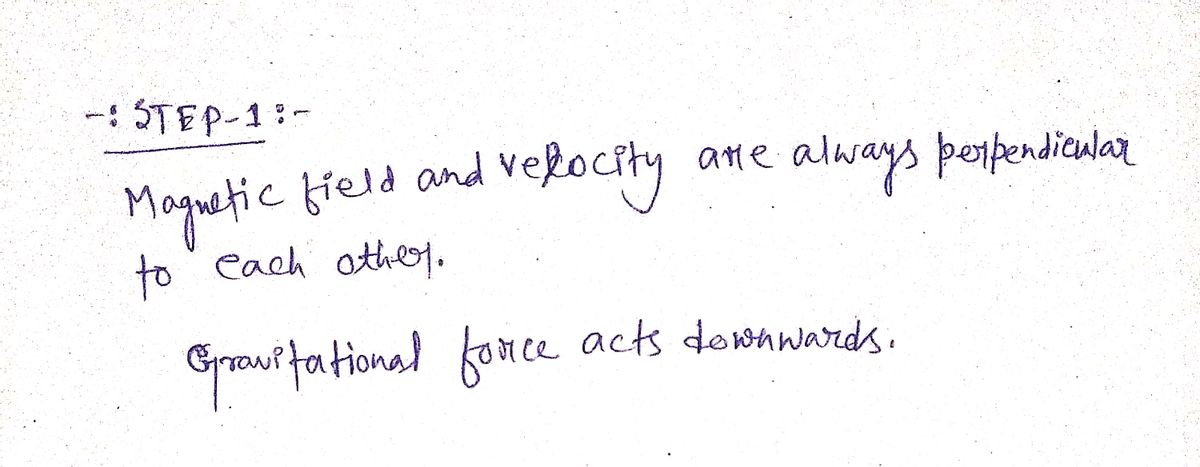 -: STEP-1 :-
Magnetic field and velocity are always perpendicular
to each other.
Gravitational force acts downwards.